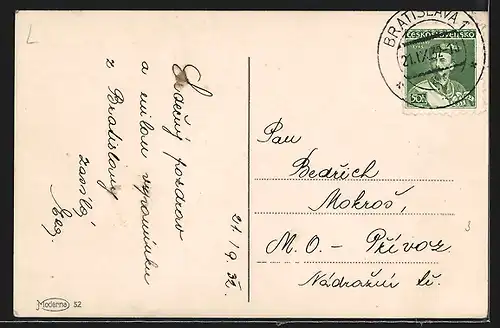 L
BRATISLAVA 1
21.IX.32
ČESKOSLOVENSKO
50h
Srdečný pozdrav
a milou vzpomínku
z Bratislavy
zasílá
21./9. 32.
Pan
Bedřich
Mokroš,
M. O. – Přívoz
Nádražní tř.
3
Moderna 32